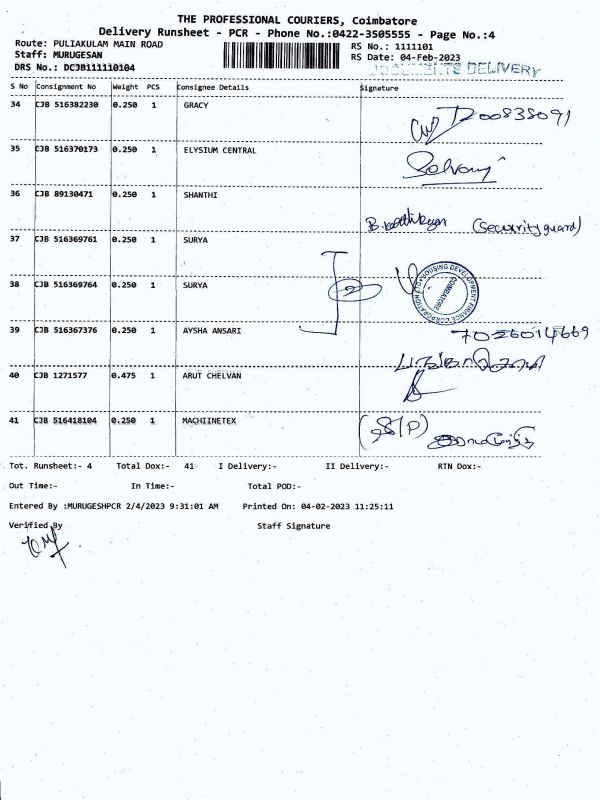 THE PROFESSIONAL COURIERS, Coimbatore
Delivery Runsheet - PCR - Phone No.:0422-3505555 - Page No.:4
Route: PULIAKULAM MAIN ROAD RS No.: 1111101
Staff: MURUGESAN RS Date: 04-Feb-2023
DRS No.: DCJB111110104 DOCUMENTS DELIVERY
S No Consignment No Weight PCS Consignee Details Signature
34 CJB 516382230 0.250 1 GRACY
35 CJB 516370173 0.250 1 ELYSIUM CENTRAL
36 CJB 89130471 0.250 1 SHANTHI
(Security guard)
37 CJB 516369761 0.250 1 SURYA
38 CJB 516369764 0.250 1 SURYA
2
HOUSING DEVELOPMENT FINANCE CORPORATION LTD
COIMBATORE
39 CJB 516367376 0.250 1 AYSHA ANSARI
7026014669
40 CJB 1271577 0.475 1 ARUT CHELVAN
41 CJB 516418104 0.250 1 MACHIINETEX
Tot. Runsheet:- 4 Total Dox:- 41 I Delivery:- II Delivery:- RTN Dox:-
Out Time:- In Time:- Total POD:-
Entered By :MURUGESHPCR 2/4/2023 9:31:01 AM Printed On: 04-02-2023 11:25:11
Verified By Staff Signature